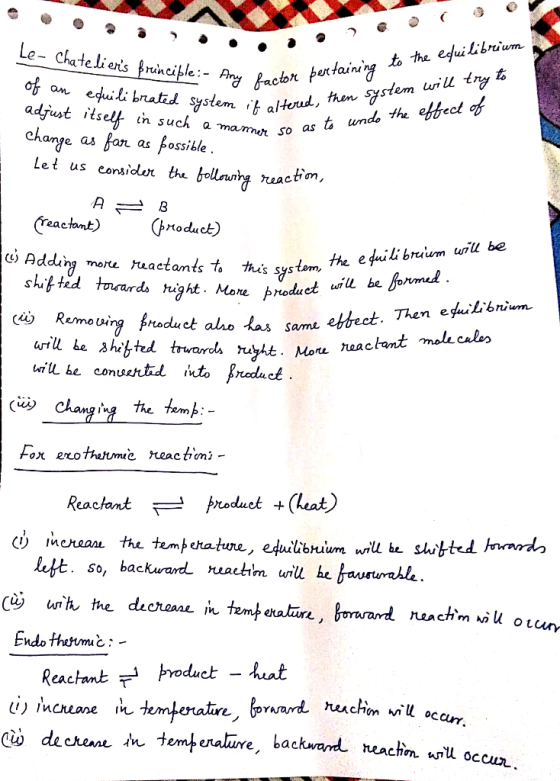 Le- Chatelier's principle:- Any factor pertaining to the equilibrium
of an equilibrated system if altered, then system will try to
adjust itself in such a manner so as to undo the effect of
change as far as possible.
Let us consider the following reaction,
A ⇌ B
(reactant) (product)
(i) Adding more reactants to this system, the equilibrium will be
shifted towards right. More product will be formed.
(ii) Removing product also has same effect. Then equilibrium
will be shifted towards right. More reactant molecules
will be converted into product.
(iii) Changing the temp:-
For exothermic reaction:-
Reactant ⇌ product + (heat)
(i) increase the temperature, equilibrium will be shifted towards
left. so, backward reaction will be favourable.
(ii) with the decrease in temperature, forward reaction will occur
Endothermic:-
Reactant ⇌ product - heat
(i) increase in temperature, forward reaction will occur.
(ii) decrease in temperature, backward reaction will occur.